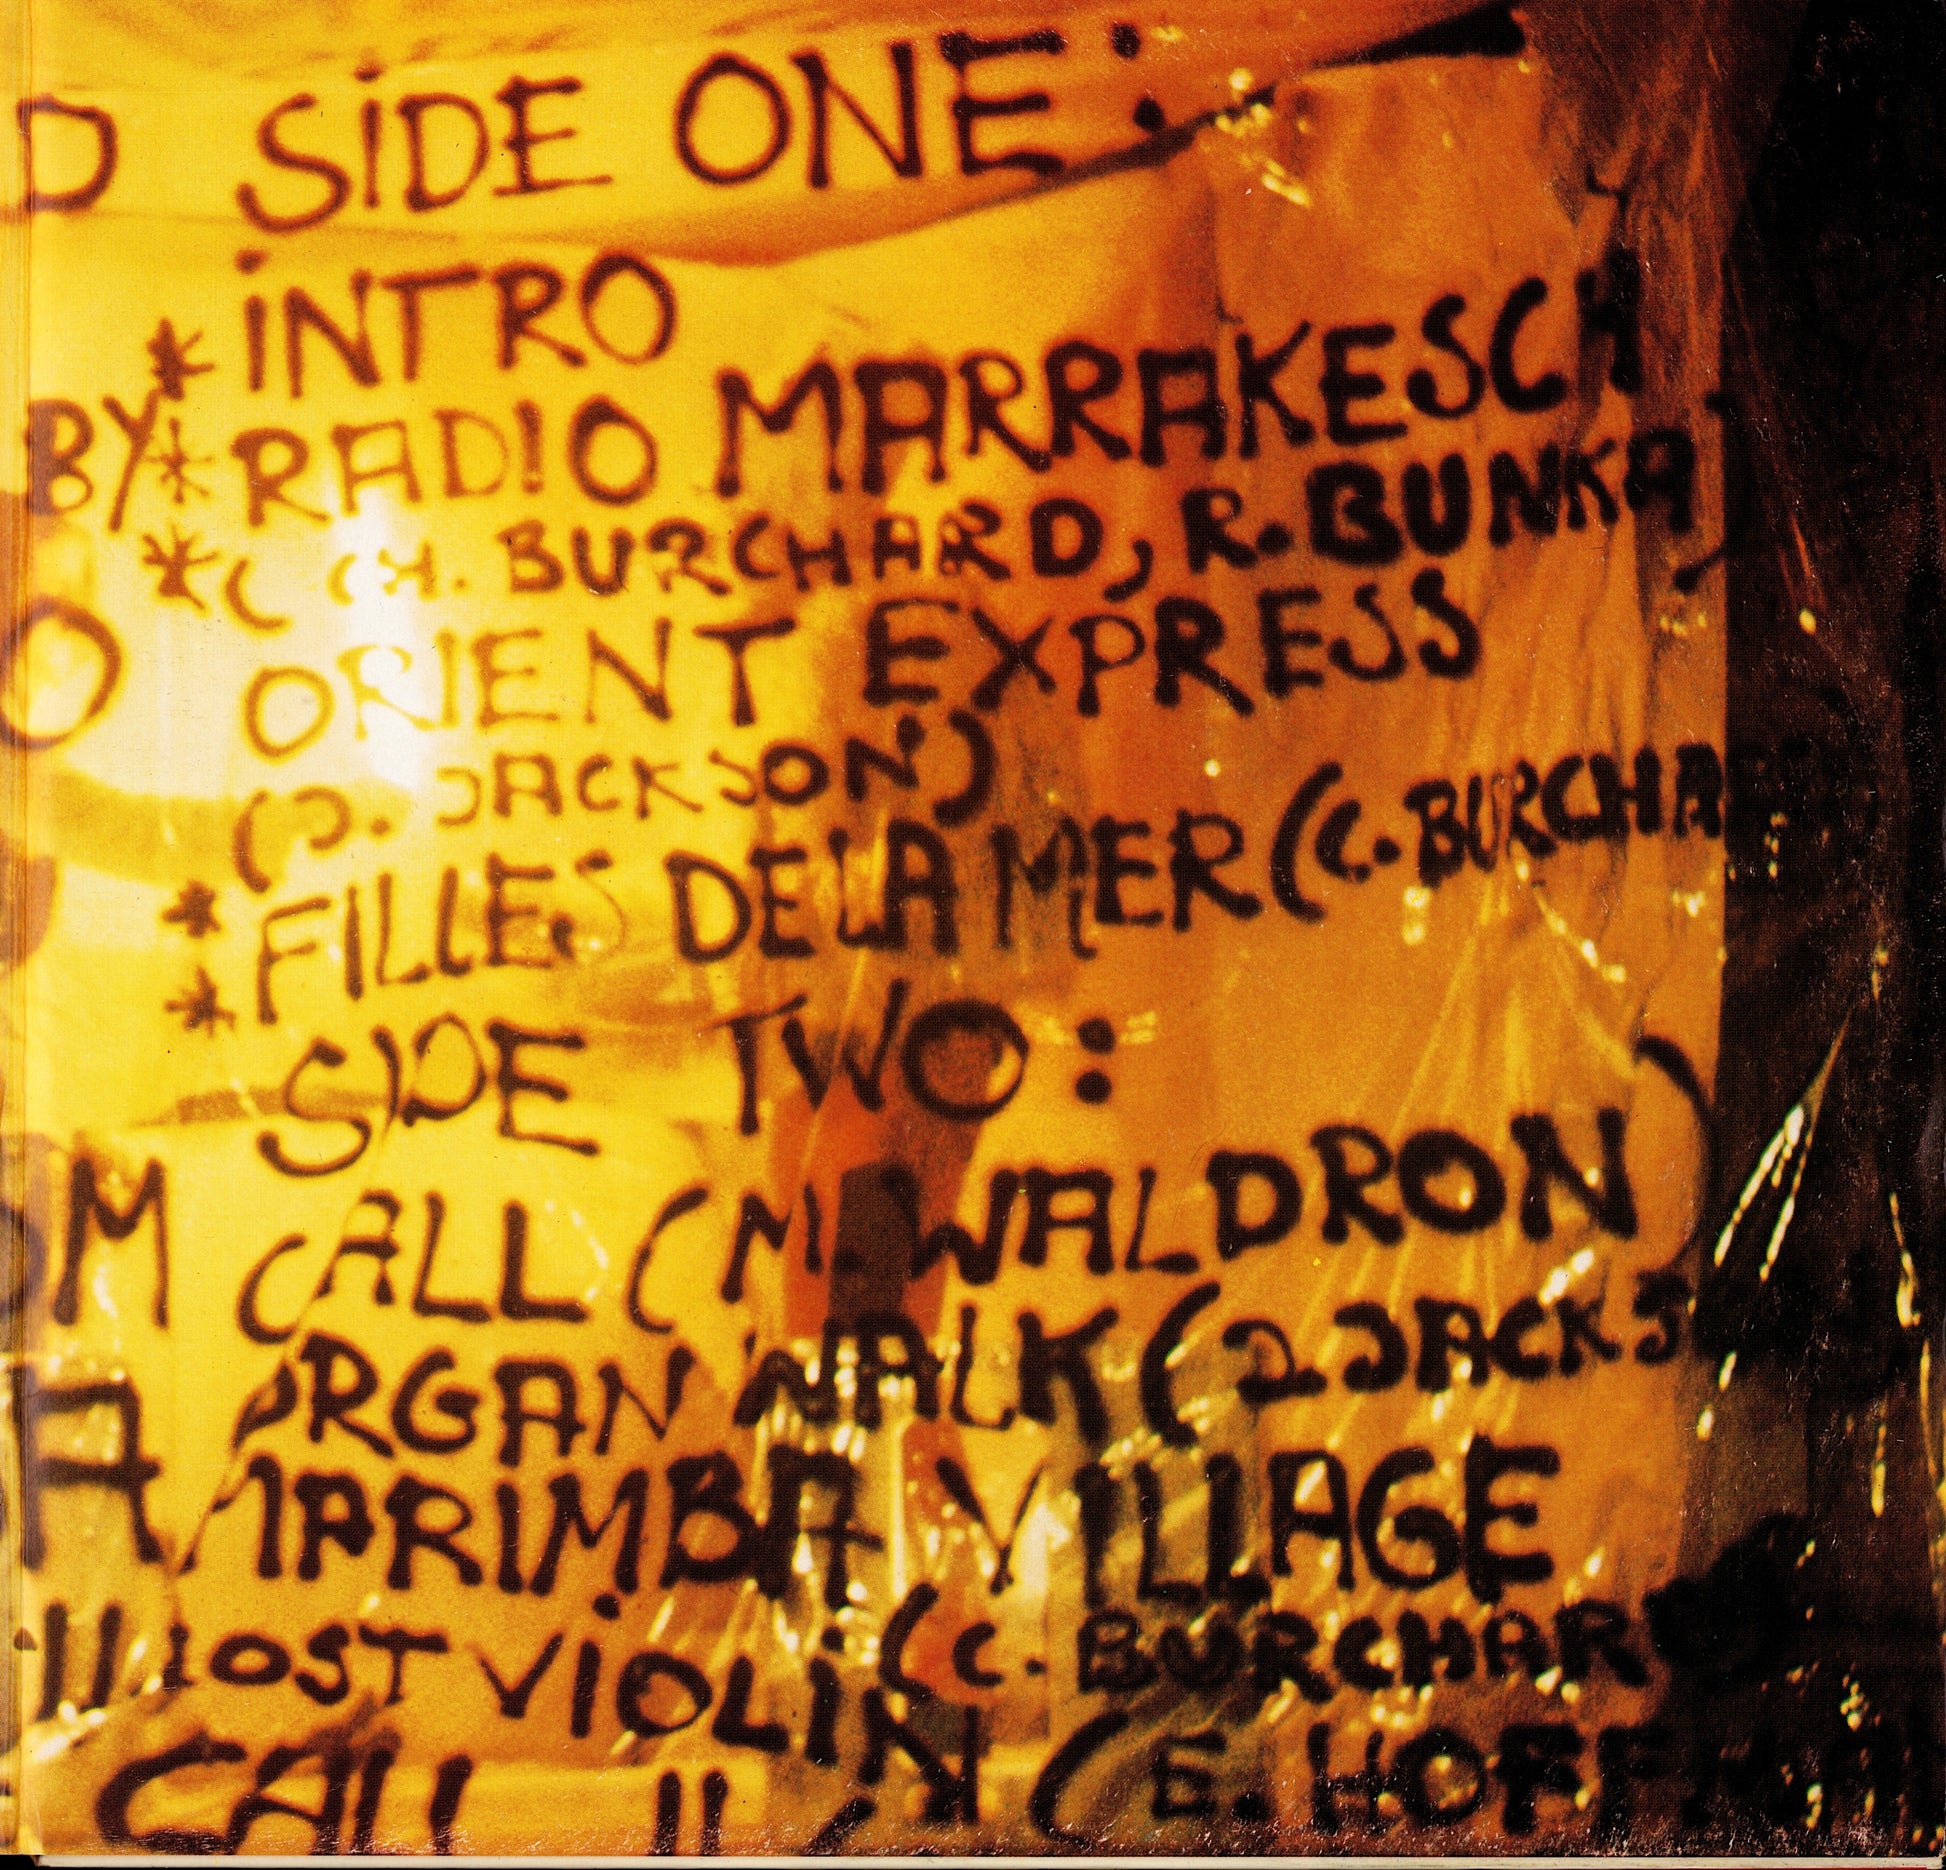 D SIDE ONE:
* INTRO
BY * RADIO MARRAKESCH
* ( CH. BURCHARD, R. BUNKA )
O ORIENT EXPRESS
(J. JACKSON)
* FILLES DE LA MER (C. BURCHA
*
SIDE TWO:
OM CALL (M. WALDRON)
ORGAN WALK (J. JACKSO
A MARIMBA VILLAGE
(C. BURCHARD
LOST VIOLIN (E. HOFFMAN
CALL II (